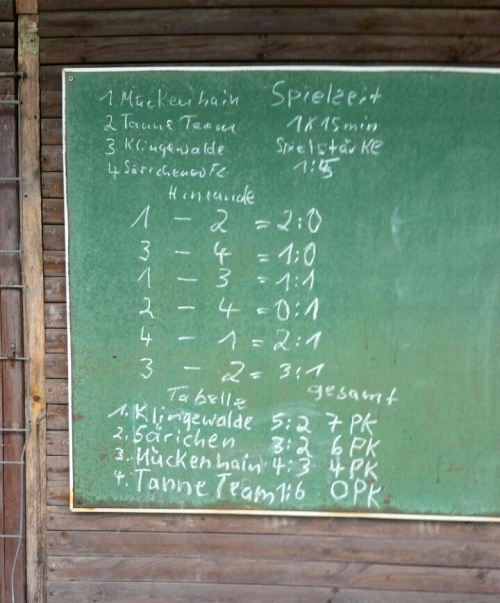 1 Mückenhain Spielzeit
2 Tanne Team 1x15min
3 Klingewalde Spielstärke
4 1:5
Hinrunde
1 - 2 = 2:0
3 - 4 = 1:0
1 - 3 = 1:1
2 - 4 = 0:1
4 - 1 = 2:1
3 - 2 = 3:1
Tabelle gesamt
1. Klingewalde 5:2 7 PK
2. Särichen 3:2 6 PK
3. Mückenhain 4:3 4 PK
4. Tanne Team 1:6 0 PK